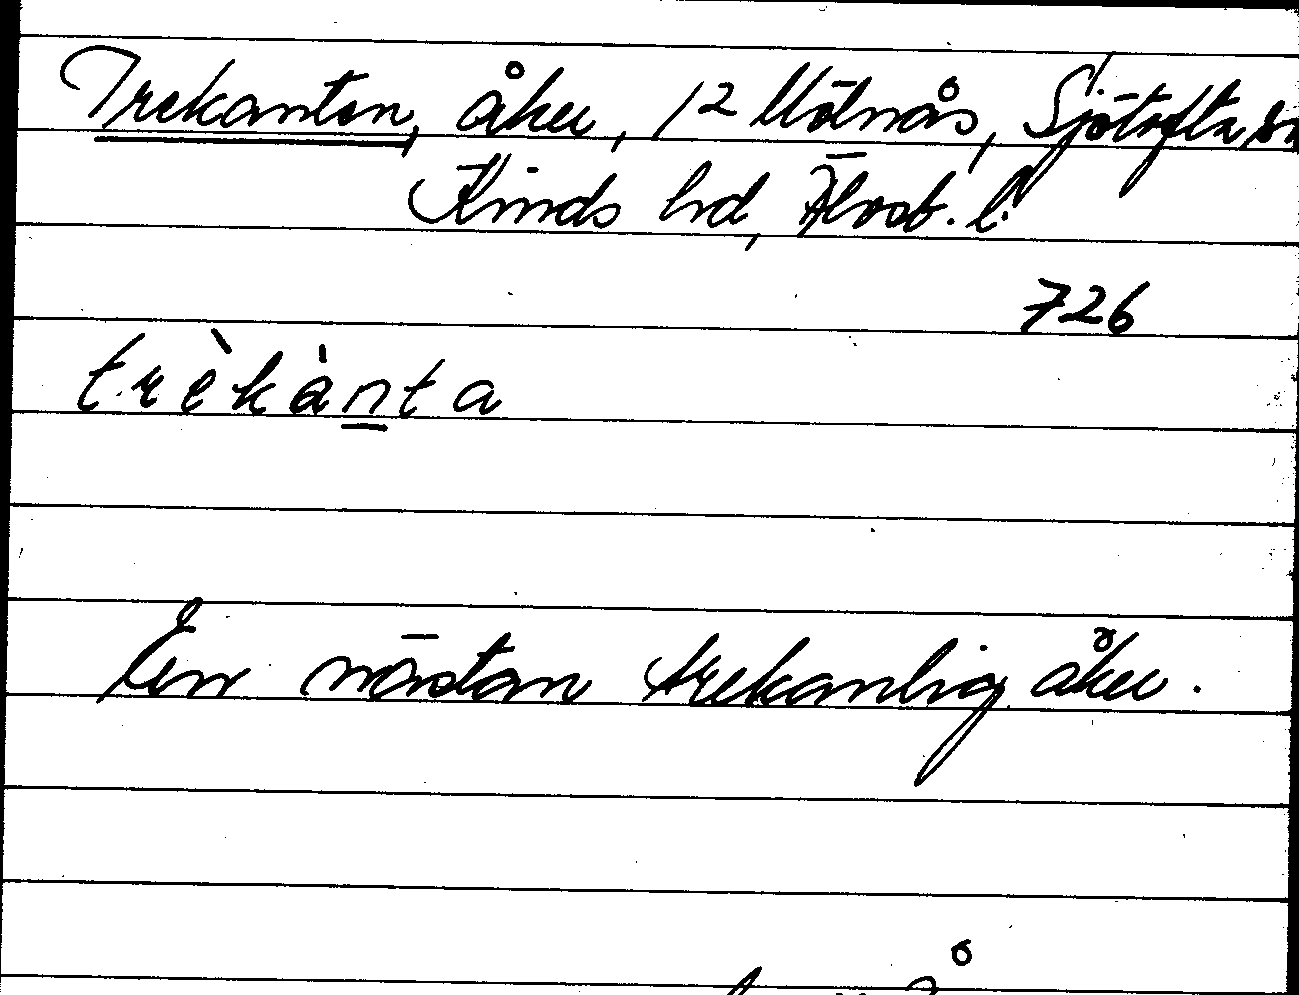 Trekanten, åker, 12 Mölnås, Sjötofta sn
Kinds hd, Älvsb. l.
726
trèkànta
En nästan trekantig åker.